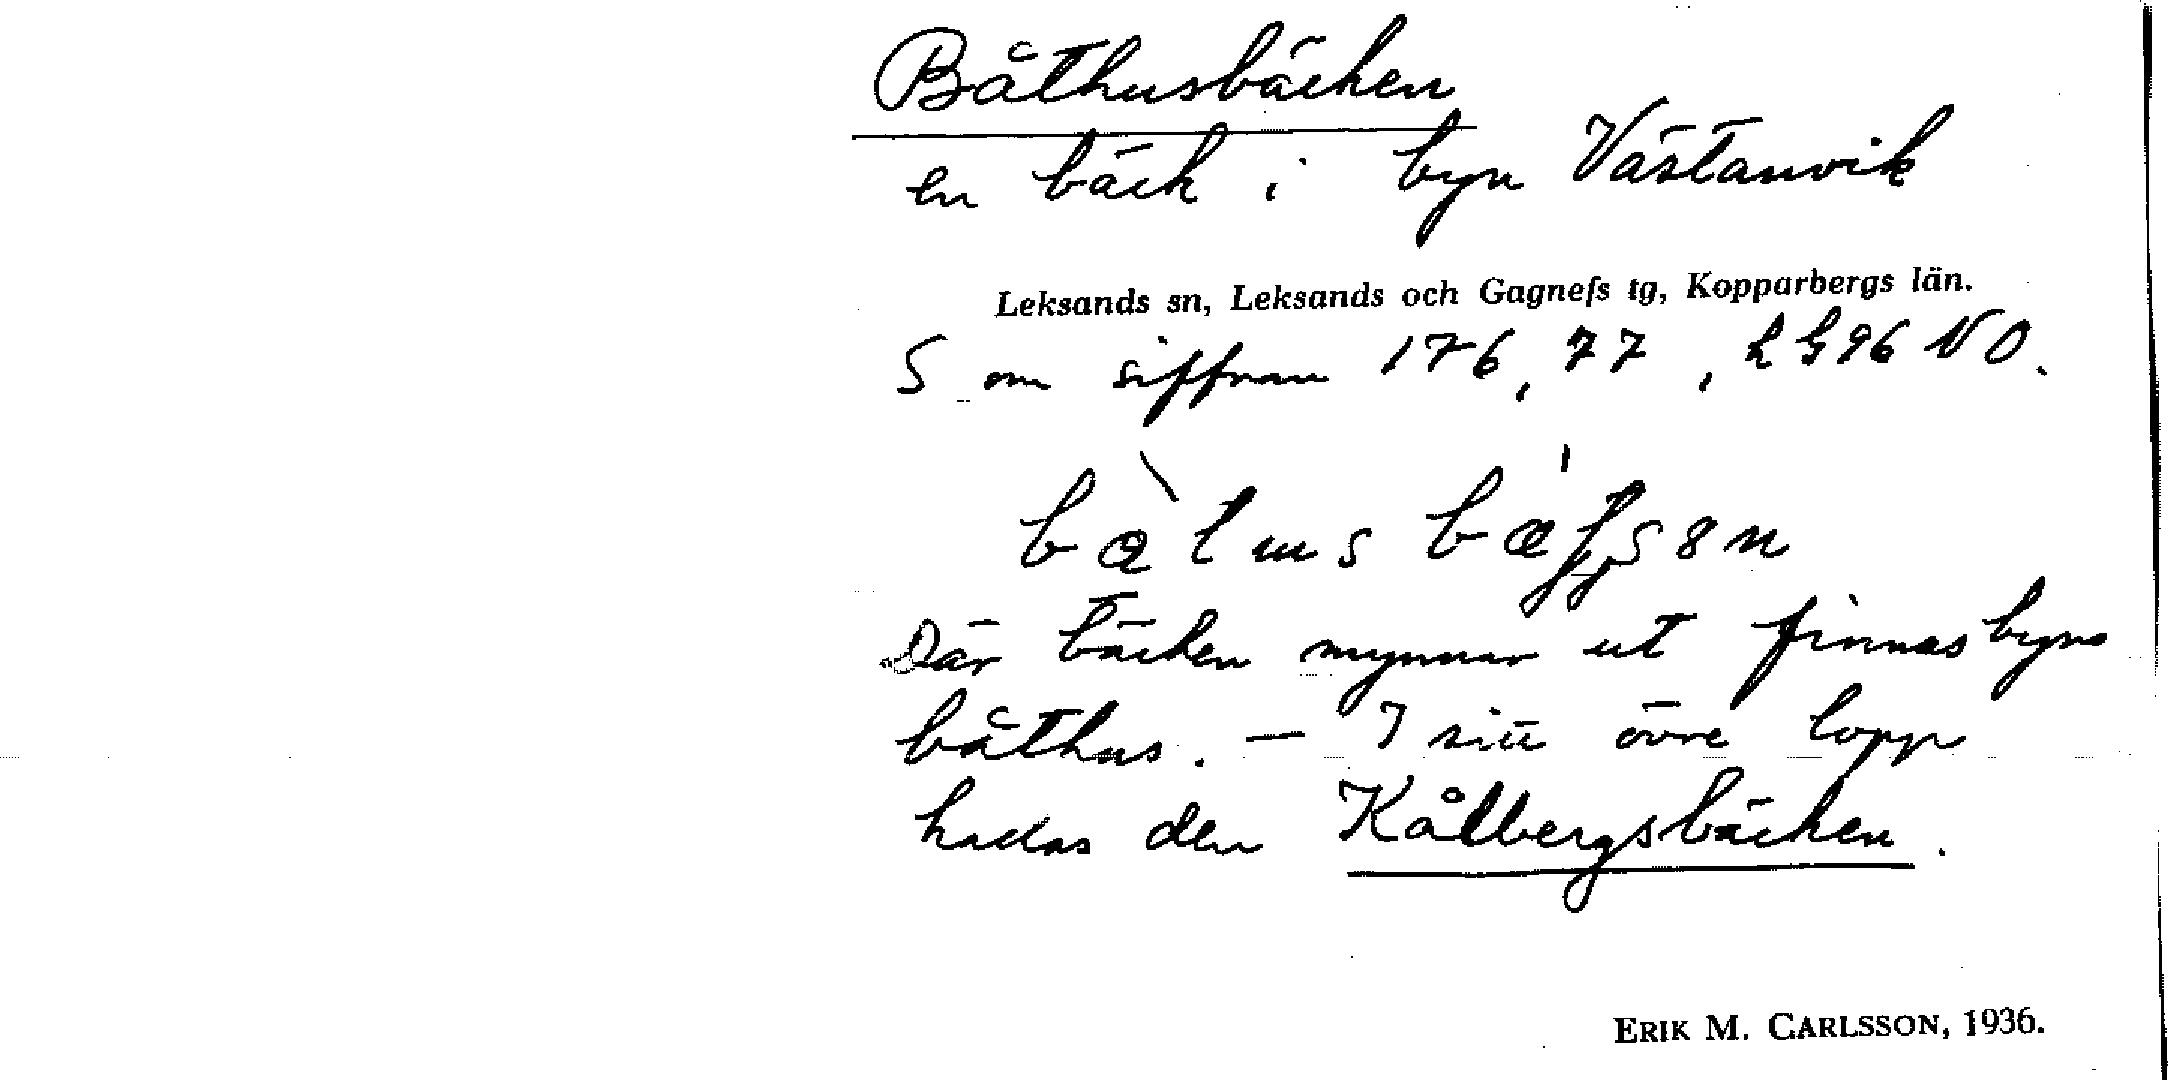 Båthusbäcken
en bäck i byn Västanvik
Leksands sn, Leksands och Gagnefs tg, Kopparbergs län.
S om siffran 176,77, hG96 NO.
Där bäcken mynnar ut finnas byns
båthus. — I sitt övre lopp
kallas den Kålbergsbäcken.
ERIK M. CARLSSON, 1936.